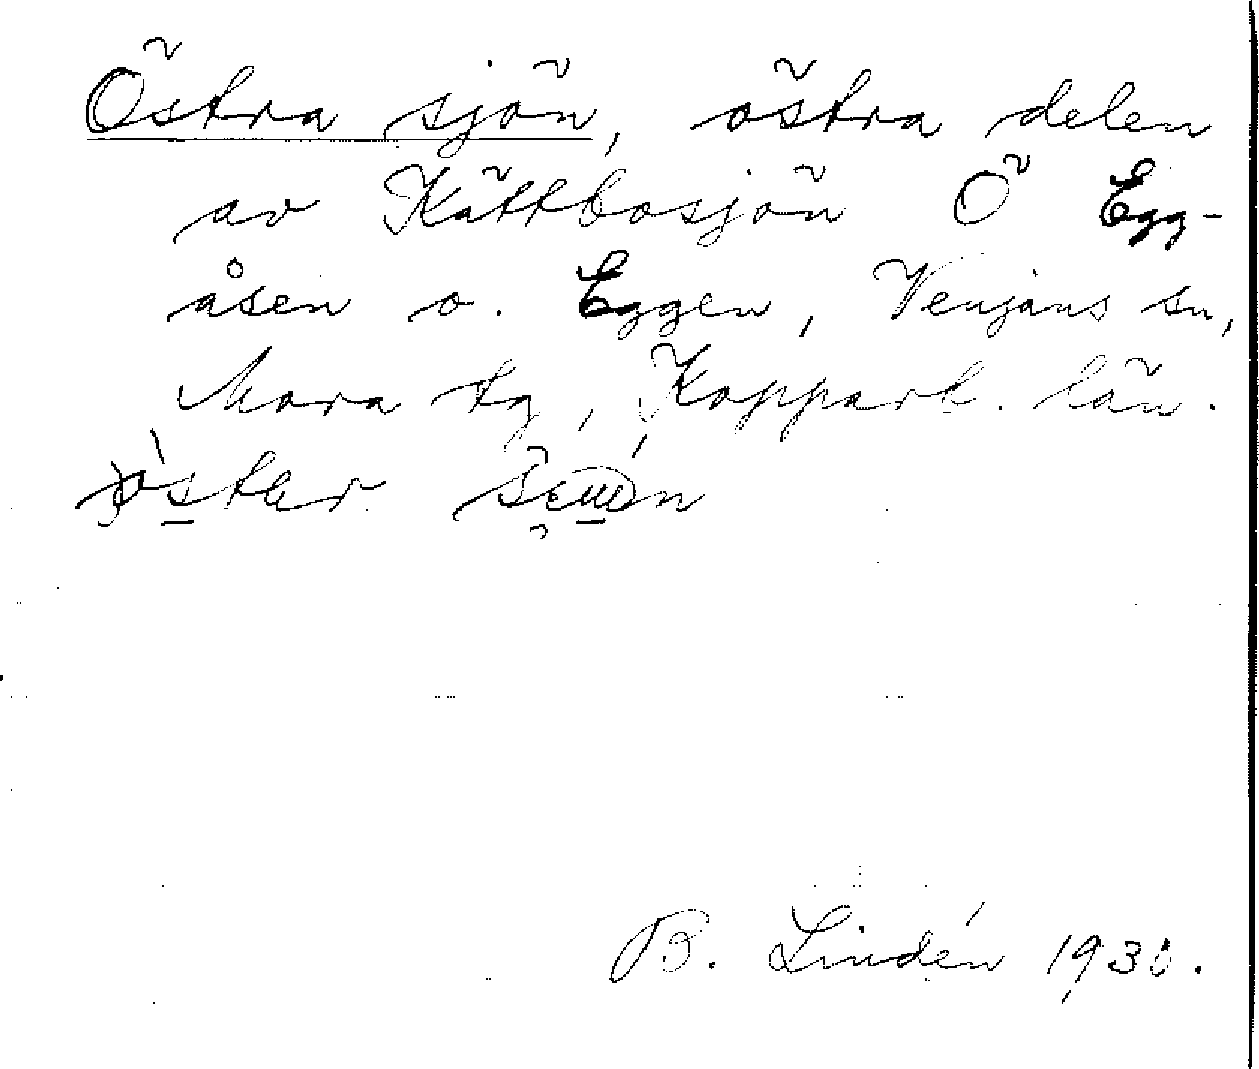 Östra sjön, östra delen
av Kättbosjön Ö Egg-
åsen o. Eggen, Venjans sn,
Mora tg, Kopparb. län.
B. Lindén 1930.